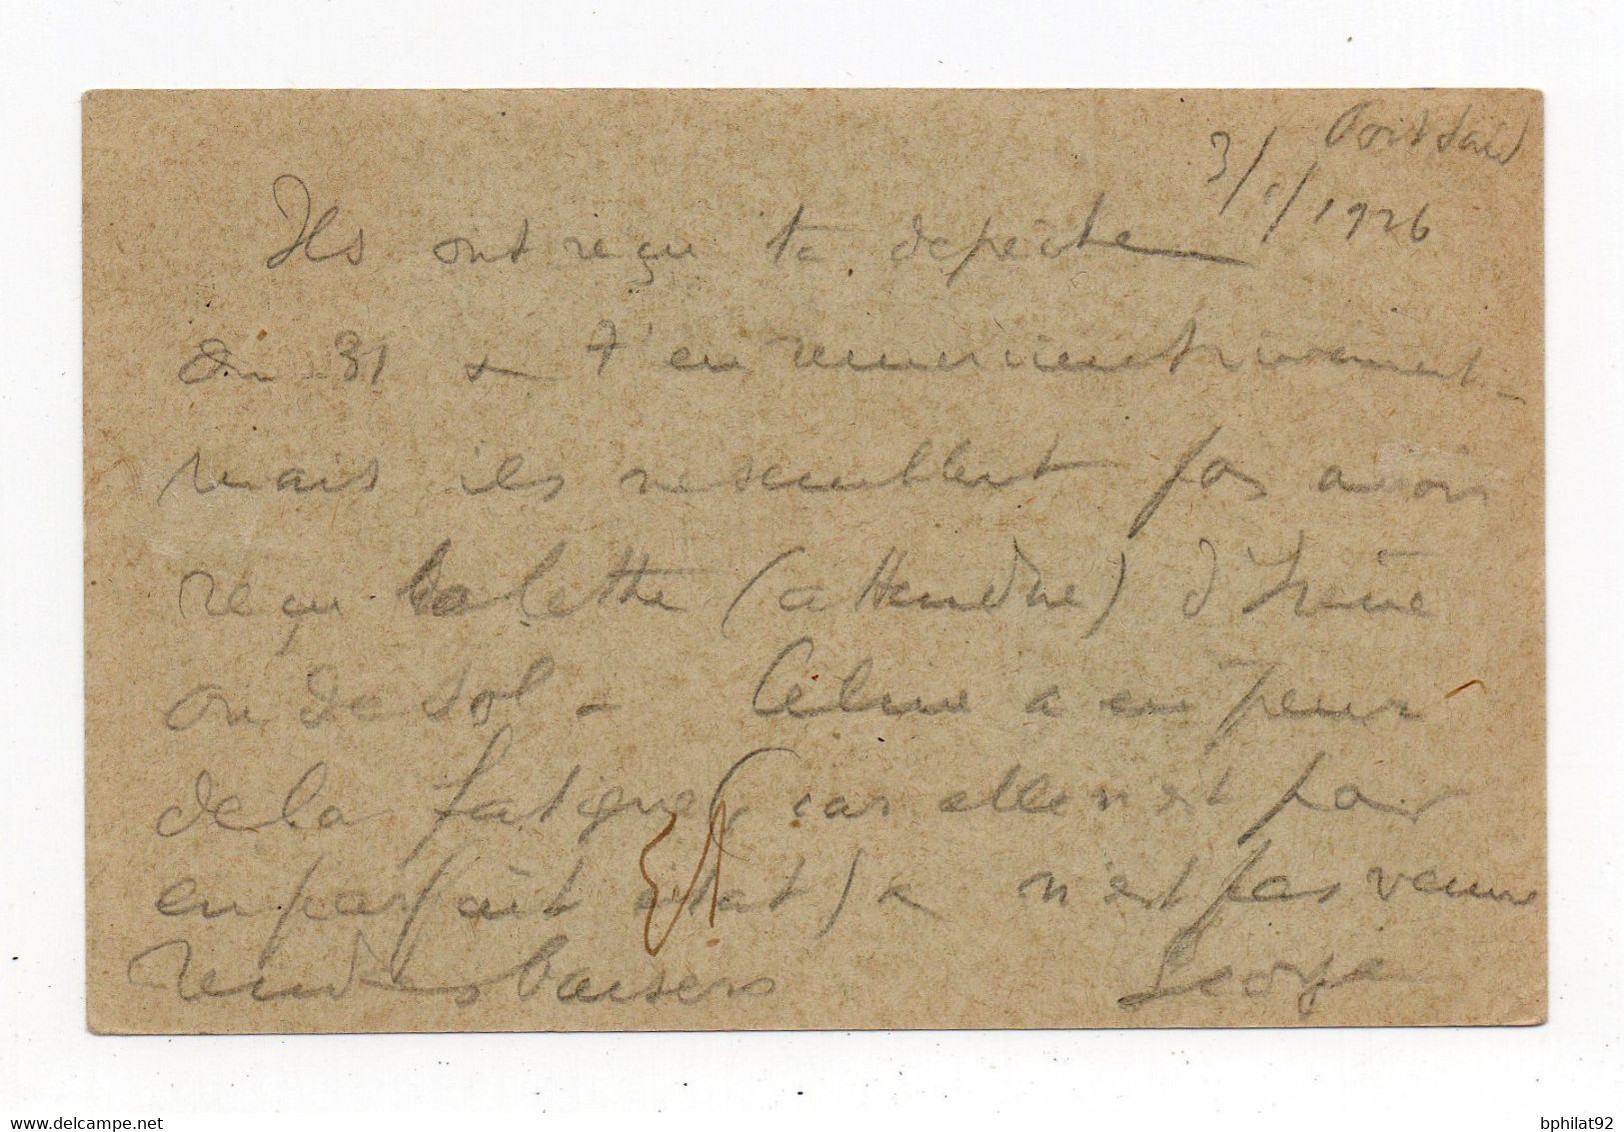 Port Said
3/1/1926
Ils ont reçu ta depêche
du 31 & t'en remercient vivement -
mais ils ne semblent pas avoir
reçu la lettre (attendue) d'Irène
ou de Sol - Céline a eu peur
de la fatigue (car elle n'est pas
en parfait état) & n'est pas venue
Tendres baisers George
bphilat92